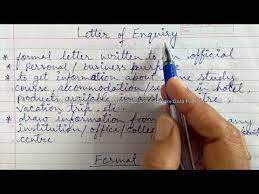 Letter of Enquiry
* formal letter written to official
personal / business purpose
* to get information about study
course, accommodation / in hotel
products available in centre,
vacation trip etc.
* draw information from any
institution / office / college
centre
Format